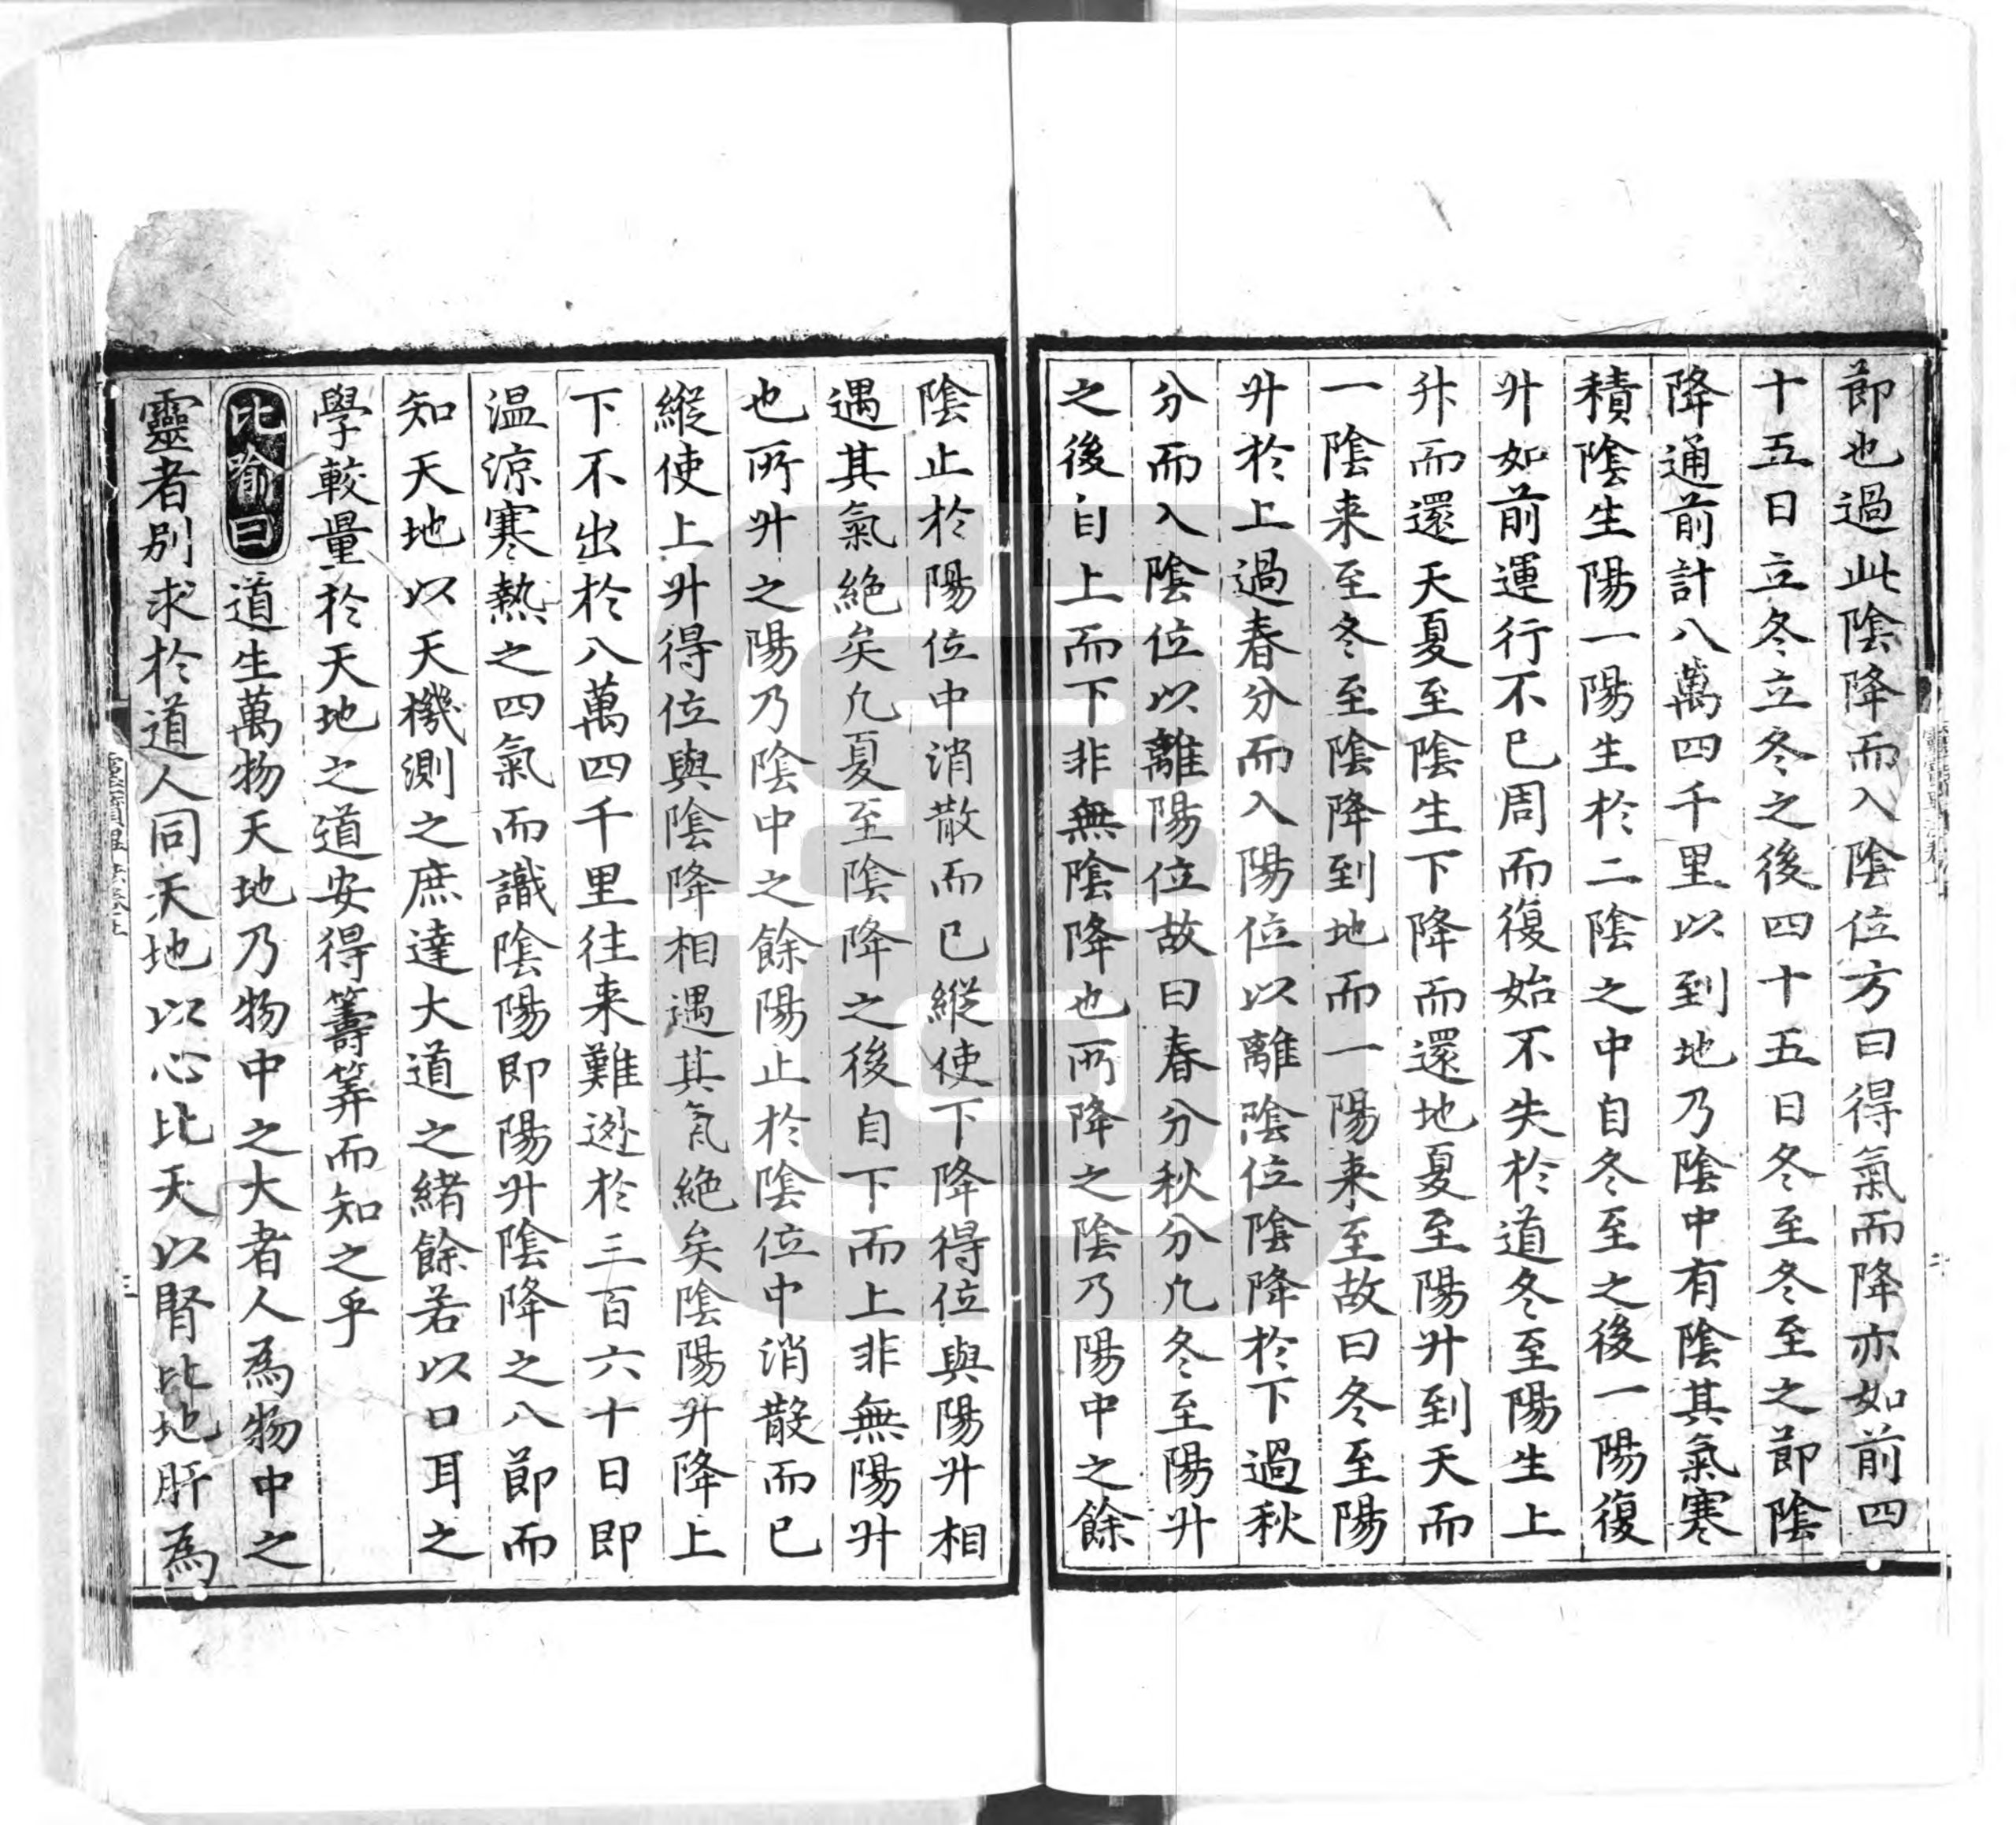 節也過此陰降而入陰位方曰得氣而降亦如前四
十五日立冬立冬之後四十五日冬至冬至之節陰
降通前計八萬四千里以到地乃陰中有陰其氣寒
積陰生陽一陽生於二陰之中自冬至之後一陽復
升如前運行不已周而復始不失於道冬至陽生上
升而還天夏至陰生下降而還地夏至陽升到天而
一陰来至冬至陰降到地而一陽来至故曰冬至陽
升於上過春分而入陽位以離陰位陰降於下過秋
分而入陰位以離陽位故曰春分秋分凡冬至陽升
之後自上而下非無陰降也所降之陰乃陽中之餘
陰止於陽位中消散而已縱使下降得位與陽升相
遇其氣絶矣凡夏至陰降之後自下而上非無陽升
也所升之陽乃陰中之餘陽止於陰位中消散而已
縱使上升得位與陰降相遇其氣絶矣陰陽升降上
下不出於八萬四千里往来難逃於三百六十日即
温涼寒熱之四氣而識陰陽即陽升陰降之八節而
知天地以天機測之庶達大道之緒餘若以口耳之
學較量於天地之道安得籌筭而知之乎
比喻曰道生萬物天地乃物中之大者人為物中之
靈者别求於道人同天地以心比天以腎比地肝為
三